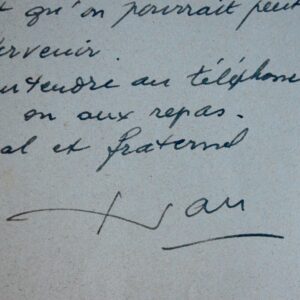 qu'on pourrait peut
ntendre au téléphone
on aux repas.
al et fraternel